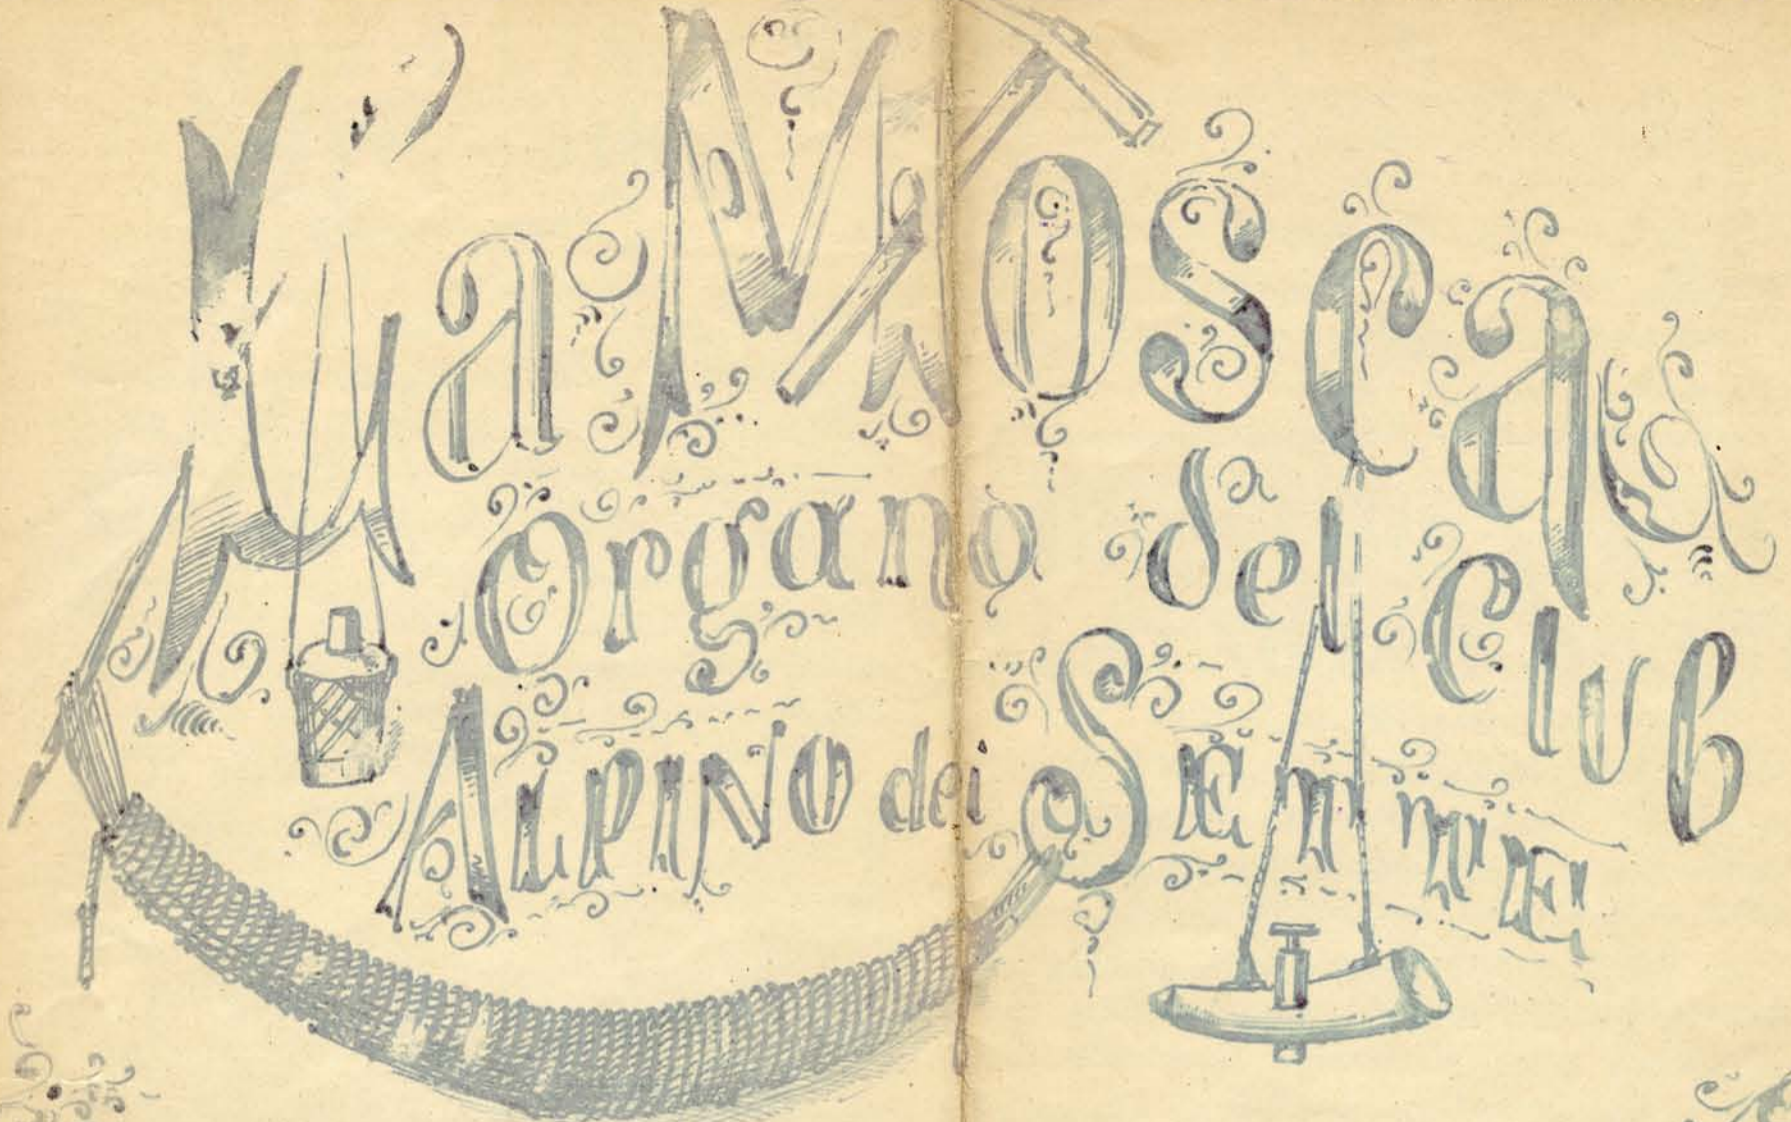 La Mosca
Organo del Club
ALPINO dei SEmmE